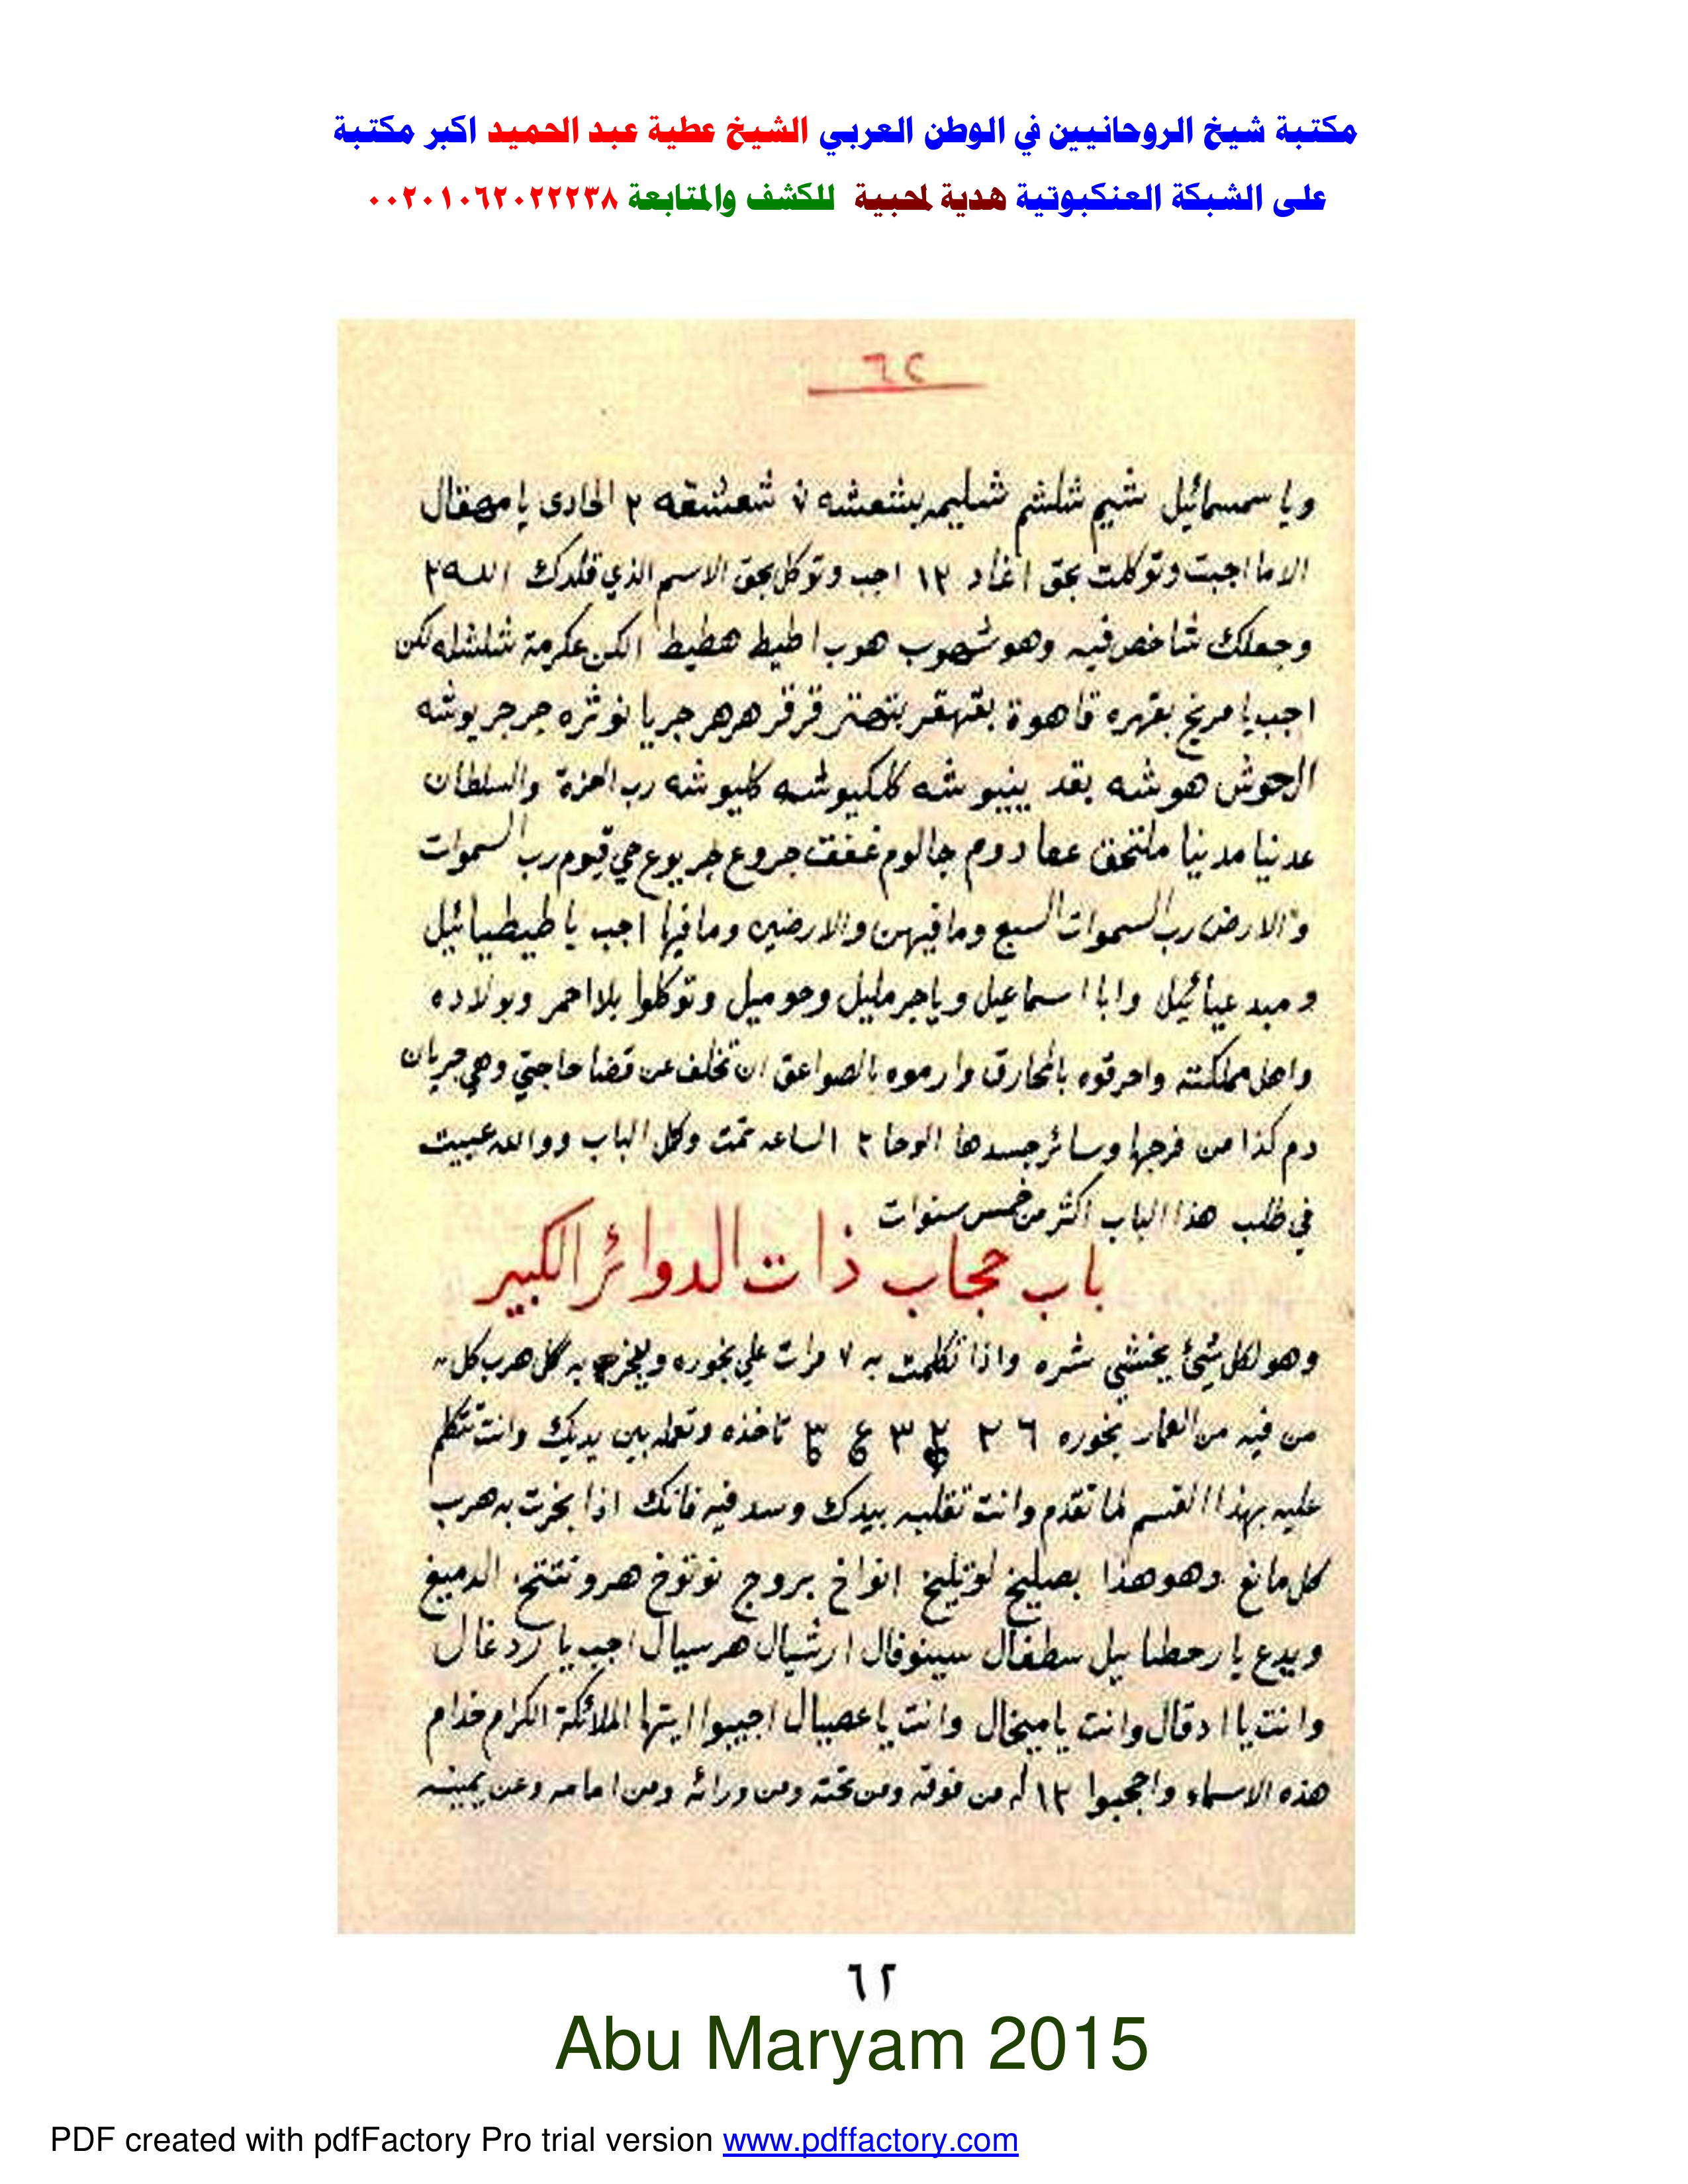 مكتبة شيخ الروحانيين في الوطن العربي الشيخ عطية عبد الحميد اكبر مكتبة
على الشبكة العنكبوتية هدية لمحبية للكشف والمتابعة ٠٠٢٠١٠٦٢٠٢٢٢٣٨
٦٢
ويا سمسمائيل شيم شلشم شليم بشعشه ٧ شعشقه ٢ الحادى يا مهقال
الا ما اجبت وتوكلت بحق اغاد ١٢ اجب وتوكل بحق الاسم الذي قلدك الله ٢
وجعلك شاخص فيه وهو شهوب هوب اطيط هطيط الكن عكرمة شلشله لكن
اجب يا مريخ بقهره قاهوة بقهقر قرقر هرهر جريا نوثره جرجريوشه
الحوش هوشه بقد ينيبوشه كلكيوشه كليوشه رب العزة والسلطان
عدنيا مدنيا ملتحق عما دوم جالوم غففت جروع جريوع حي قيوم رب السموات
والارض رب السموات السبع وما فيهن والارضين وما فيها اجب يا طيطيائيل
وميد عيائيل وابا اسماعيل ويا جرمليل وحوميل وتوكلوا بلاحمر وبولاده
واهل مملكته واحرقوه بالمحارق وارموه بالصواعق ان تخلف عن قضا حاجتي وهي جريان
دم كذا من فرجها وسائر جسدها الوحا ٢ الساعه تمت وكل الباب ووالله عييت
في طلب هذا الباب اكثر من خمس سنوات
باب حجاب ذات الدوائر الكبير
وهو لكل شيئ يختشي شره واذا تكلمت به ٧ مرات علي بخوره به كل هرب كل
من فيه من العمار بخوره ٦ ٢ ٣ تاخذه وتعمله بين يديك وانت تتكلم
عليه بهذا القسم لما تقدم وانت تقلبه بيدك وسد فيه فانك اذا بخرت به هرب
كل مانع وهو هذا بصليخ لوتليخ انواخ بروج نوتوخ هرونتتح الدميغ
ويدع يا رحطيا ييل سطفال سينوفال ارشيال هرسيال اجب يا زدغال
وانت يا ادقال وانت يا ميخال وانت يا عصيال اجيبوا ايتها الملائكة الكرام خدام
هذه الاسماء واحجبوا ١٢ له من فوقه ومن تحته ومن ورائه ومن امامه وعن يمينه
٦٢
Abu Maryam 2015
PDF created with pdfFactory Pro trial version www.pdffactory.com